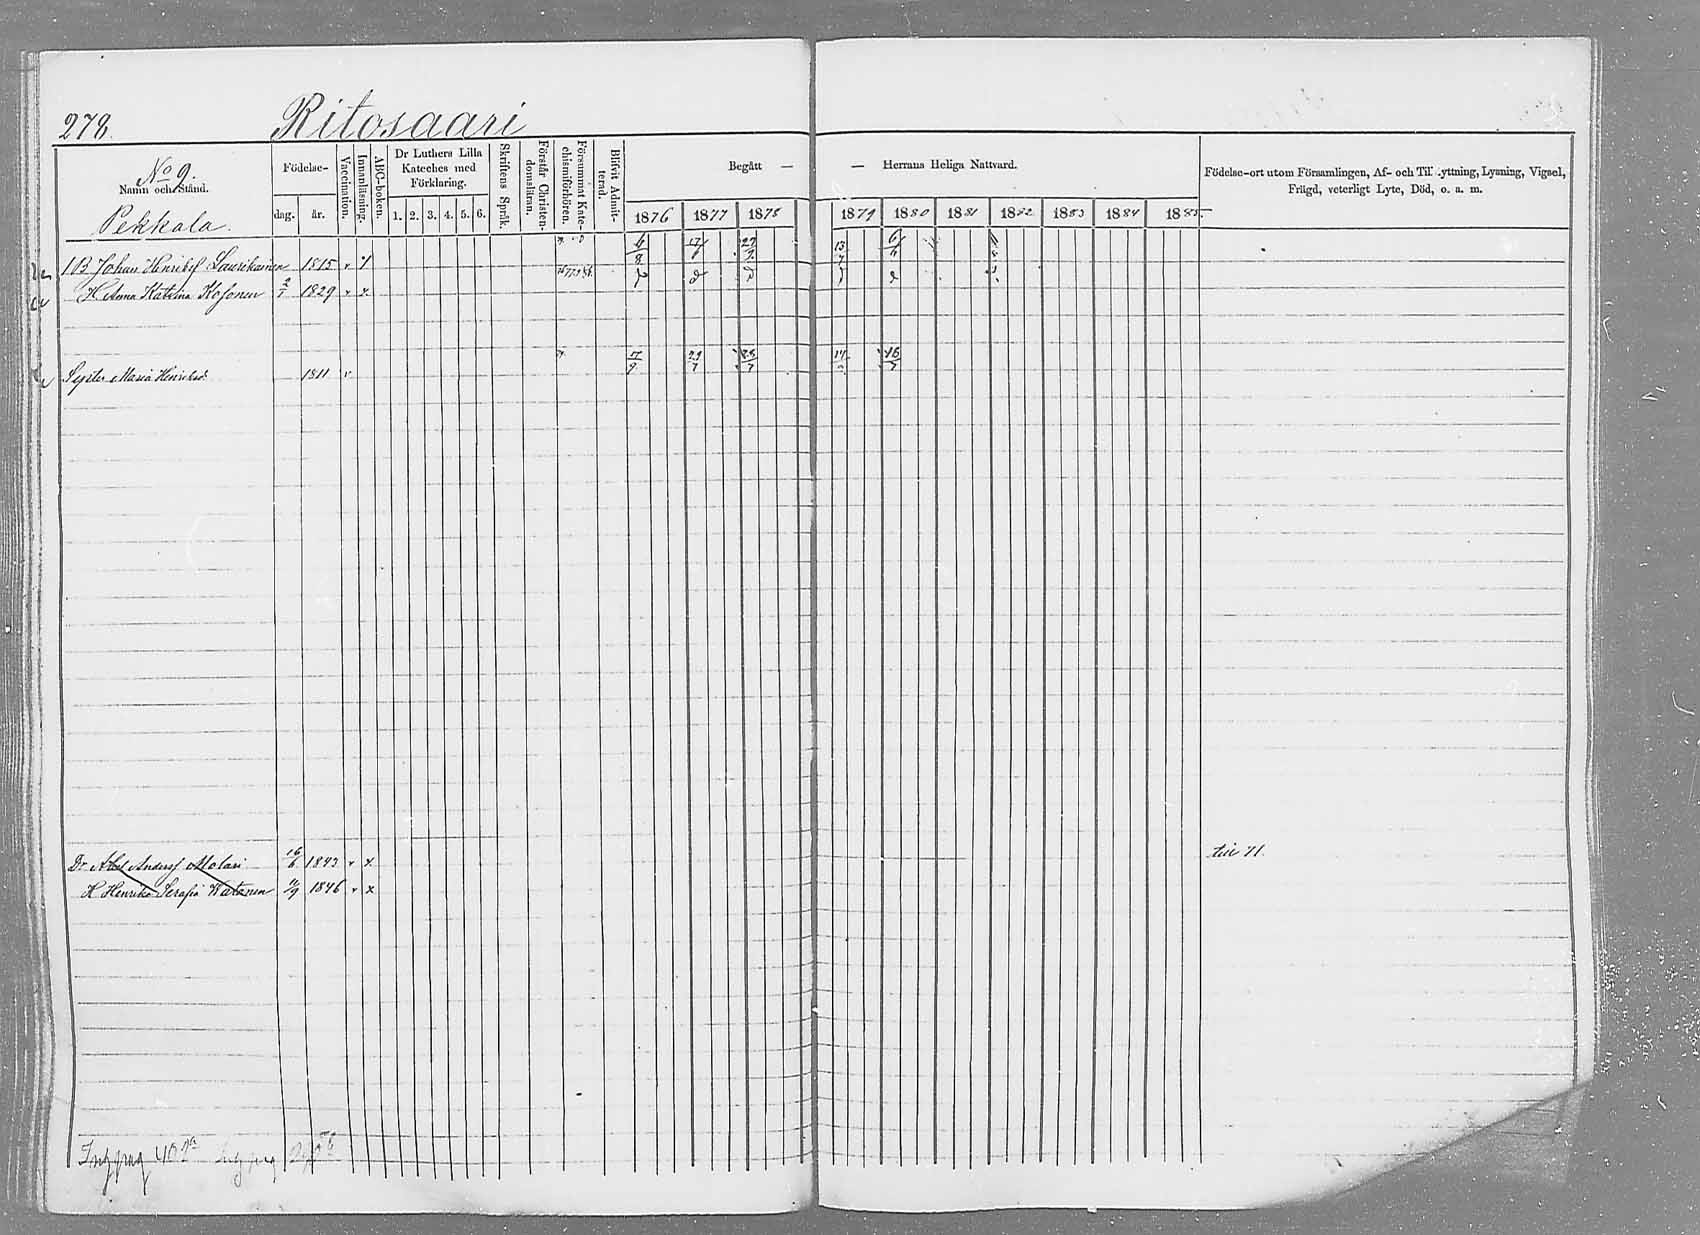 278.
Ritosaari
No 9.
Namn och Stånd.
Pekkala.
Födelse-
dag. år.
Vaccination.
Innanläsning.
ABC-boken.
Dr Luthers Lilla Kateches med Förklaring.
1. 2. 3. 4. 5. 6.
Skriftens Språk.
Förstår Christendomsläran.
Försummat Katechismiförhören.
Blifvit Admitterad.
Begått — — Herrans Heliga Nattvard.
1876 1877 1878 1879 1880 1881 1882 1883 1884 1885
Födelse-ort utom Församlingen, Af- och Till yttning, Lysning, Vigsel,
Frägd, veterligt Lyte, Död, o. a. m.
1 B Johan Henriks Laurikainen 1815
H. Anna Katrina Kosonen 2/1 1829 v x
Syster Maria Henriksd. 1811 v
Dr Abel Anders Molari 16/6 1843 v x till 71.
H Henrika Serafia Watanen 11/9 1846 v x
Ing pag 402